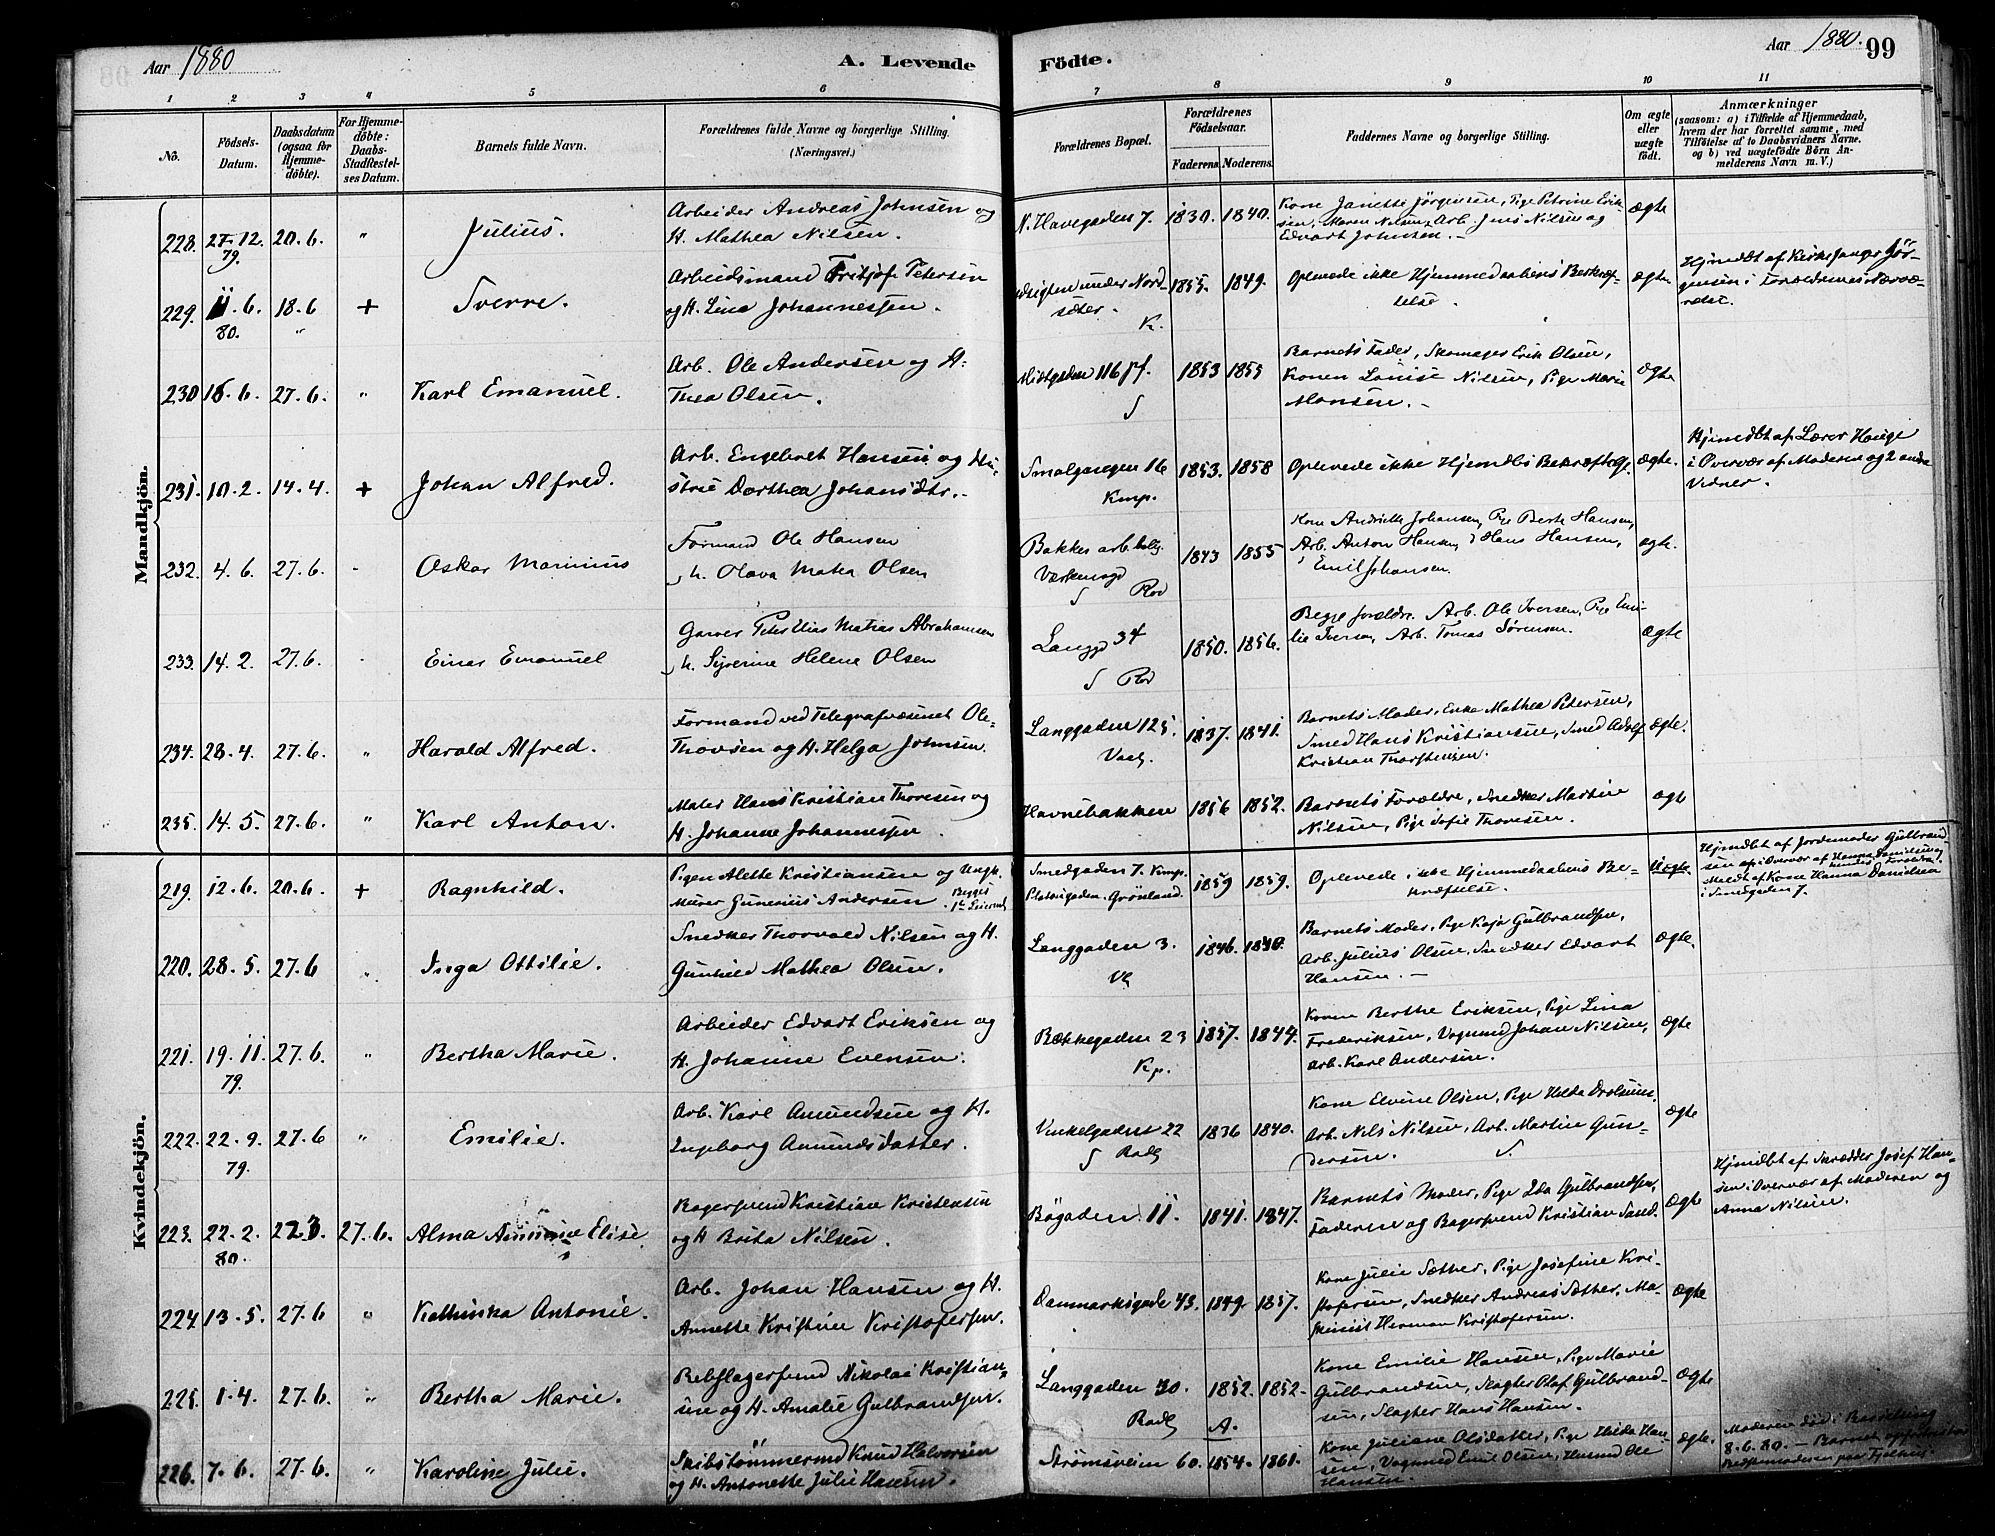 Aar 1880
A. Levende
Födte.
Aar 1880.
99
1 2 3 4 5 6 7 8 9 10 11
No.
Födsels-
Datum.
Daabsdatum
(ogsaa for
Hjemme-
döbte).
For Hjemme-
döbte:
Daabs-
Stadfæstel-
ses Datum.
Barnets fulde Navn.
Forældrenes fulde Navne og borgerlige Stilling.
(Næringsvei.)
Forældrenes Bopæl.
Forældrenes
Födselsaar.
Faderens. Moderens.
Faddernes Navne og borgerlige Stilling.
Om ægte
eller
uægte
födt.
Anmærkninger
(saasom: a) i Tilfælde af Hjemmedaab,
hvem der har forrettet samme, med
Tilföielse af to Daabsvidners Navne,
og b) ved uægtefödte Börn An-
melderens Navn m. V.)
Mandkjön.
228. 27-12.
79.
20.6. " Julius.
Arbeider Andreas Johnsen og
H. Mathea Nilsen.
N. Havegaden 7. 1830. 1840.
Kone Janette Jörgensen, Pige Petrine Erik-
sen, Maren Nilsen, Arb. Jens Nilsen og
Edvart Johnsen.
ægte
229. 11.6.
80.
18.6 + Sverre.
Arbeidsmand Fritjof Petersen
og H. Lina Johannessen.
Udsigten under Nord
sæter.
K.
1855. 1849.
Oplevede ikke Hjemmedaabens Bekræf-
telse.
ægte
Hjmdbt af Kirkesanger Jör-
gensen i Forældrenes Nærvæ-
relse.
230 16.6. 27.6. " Karl Emanuel.
Arb. Ole Andersen og H.
Thea Olsen.
Midtgaden 116
S
1853 1855
Barnets Fader, Skomager Erik Olsen,
Konen Louise Nilsen, Pige Marie
Monsen.
ægte
231. 10.2. 14.4. + Johan Alfred.
Arb. Engebret Hansen og Hu-
strue Dorthea Johansdtr.
Smalgangen 16
Kmp.
1853. 1858
Oplevede ikke Hjemdbs Bekræftelse.
ægte.
Hjmdbt af Lærer Hauge
i Overvær af Moderen og 2 andre
Vidner.
232. 4.6. 27.6. - Oskar Marinius
Formand Ole Hansen
h. Olava Matea Olsen
Bakkes arb. bolig.
S Rod
1843 1855
Kone Andrielle Johansen, Pige Berte Hansen,
Arb. Anton Hansen, Hans Hansen,
Emil Johansen.
ægte.
233. 14.2. 27.6. - Einar Emanuel
Garver Peter Elias Matias Abrahamsen
h. Syverine Helene Olsen
Langgd 34
S Rod
1850. 1856.
Begge forældre. Arb. Ole Iversen, Pige Emi-
lie Iversen, Arb. Tomas Sörensen.
ægte
234. 28.4. 27.6. " Harald Alfred.
Formand ved Telegrafvæsenet Ole
Thovsen og H. Helga Johnsen.
Langgaden 125.
1837. 1841.
Barnets Moder, Enke Mathea Petersen,
Smed Hans Kristiansen, Smed Adolf
Kristian Thorstensen.
ægte.
235. 14.5. 27.6. " Karl Anton.
Maler Hans Kristian Thoresen og
H. Johanne Johannessen.
Havnebakken 1856 1852.
Barnets Forældre, Snedker Martin
Nilsen, Pige Sofie Thoresen.
ægte
Kvindekjön.
219. 12.6. 20.6. + Ragnhild.
Pigen Alette Kristiansen og Ungk.
Murer Gunerius Andersen. Begges
1ste Leiermaal
Smedgaden 7. Kmp.
Platousgaden. Grönland.
1859 1859.
Oplevede ikke Hjemmedaabens Be-
kræftelse.
Uægte.
Hjmdbt af Jordemoder Gulbrand-
sen i Overvær af Hanna Danielsen og
hendes Forældre.
Meldt af Kone Hanna Danielsen
i Smedgaden 7.
220. 28.5. 27.6 " Inga Ottilie.
Snedker Thorvald Nilsen og H.
Gunhild Mathea Olsen.
Langgaden 3.
Vl
1846. 1840.
Barnets Moder, Pige Kaja Gulbrandsen,
Arb. Julius Olsen, Snedker Edvart
Hansen.
ægte.
221. 19.11.
79.
27.6. " Bertha Marie.
Arbeider Edvart Eriksen og
H. Johanne Evensen.
Bækkegaden 23
Kp.
1857. 1844.
Konen Berthe Eriksen, Pige Lina
Frederiksen, Vognmd Johan Nilsen,
Arb. Karl Andersen.
ægte
222. 22.9.
79.
27.6 " Emilie.
Arb. Karl Amundsen og H.
Ingeborg Amundsdatter.
Vinkelgaden 22
S Rodl
1836 1840.
Kone Elvine Olsen, Pige Hilda
Arb. Nils Nilsen, Arb. Martin Gun-
dersen.
S.
ægte
223. 22.2.
80.
22.3. 27.6. Alma Elise
Bagersvend Kristian Kristensen
og H Brita Nilsen.
Bögaden 11. 1841. 1847.
Barnets Moder, Pige Ida Gulbrandsen,
Faderen og Bagersvend Kristian Sand.
ægte
Hjmdbt af Skrædder Josef Han-
sen i Overvær af Moderen og
Anna Nilsen.
224. 13.5. 27.6 " Kathinka Antonie.
Arb. Johan Hansen og H.
Annette Kristine Kristofersen.
Danmarksgade 43. 1849. 1857.
Kone Julie Sæther, Pige Josefine Kri-
stofersen, Snedker Andreas Sæther, Ma-
skinist Herman Kristofersen.
ægte
225. 1.4. 27.6. " Bertha Marie.
Rebslagersvend Nikolai Kristian-
sen og H. Amalie Gulbrandsen.
Langgaden 30.
Rodl
1852. 1852.
A.
Kone Emilie Hansen, Pige Marie
Gulbrandsen, Slagter Olaf Gulbrand-
sen, Slagter Hans Hansen.
ægte
226. 7.6. 27.6. " Karoline Julie.
Skibstömmermd Knud Halvorsen
og H. Antonette Julie Hansen.
Strömsveien 60. 1854. 1861.
Kone Juliane Olsdatter, Pige Hilda Han-
sen, Vognmd Emil Olsen, Husmd Ole
Hansen.
ægte.
Moderen död i Barselseng
8.6.80. — Barnet